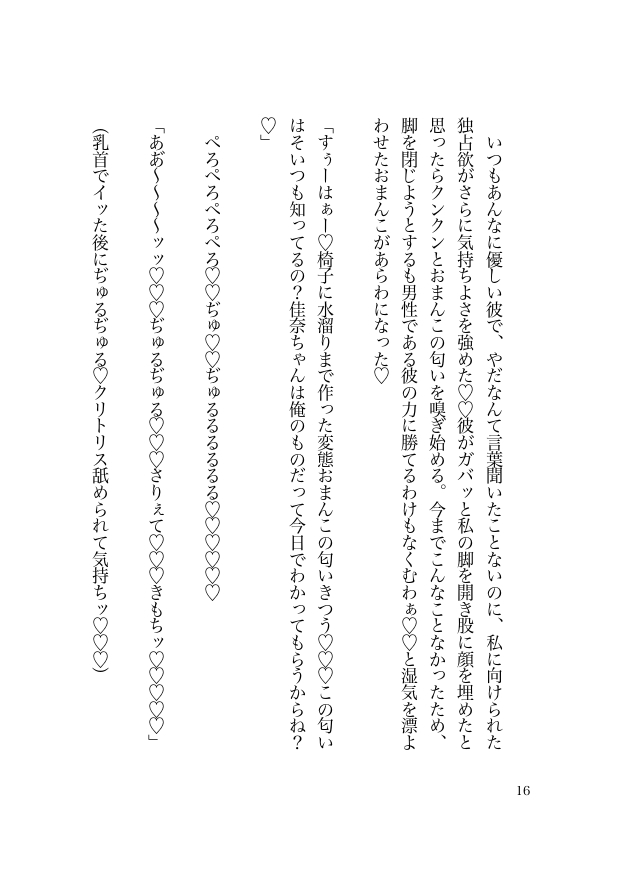 いつもあんなに優しい彼で、やだなんて言葉聞いたことないのに、私に向けられた
独占欲がさらに気持ちよさを強めた♡♡彼がガバッと私の脚を開き股に顔を埋めたと
思ったらクンクンとおまんこの匂いを嗅ぎ始める。今までこんなことなかったため、
脚を閉じようとするも男性である彼の力に勝てるわけもなくむわぁ♡♡と湿気を漂よ
わせたおまんこがあらわになった♡
「すぅーはぁー♡椅子に水溜りまで作った変態おまんこの匂いきつう♡♡♡この匂い
はそいつも知ってるの？佳奈ちゃんは俺のものだって今日でわかってもらうからね？
♡」
ぺろぺろぺろぺろ♡♡ぢゅ♡♡ぢゅるるるるるる♡♡♡♡♡
「ああ゙〜〜〜〜ッッ♡♡♡ぢゅるぢゅる♡♡♡さりぇて♡♡♡きもちッ♡♡♡♡♡」
(乳首でイッた後にぢゅるぢゅる♡クリトリス舐められて気持ちッ♡♡♡)
16